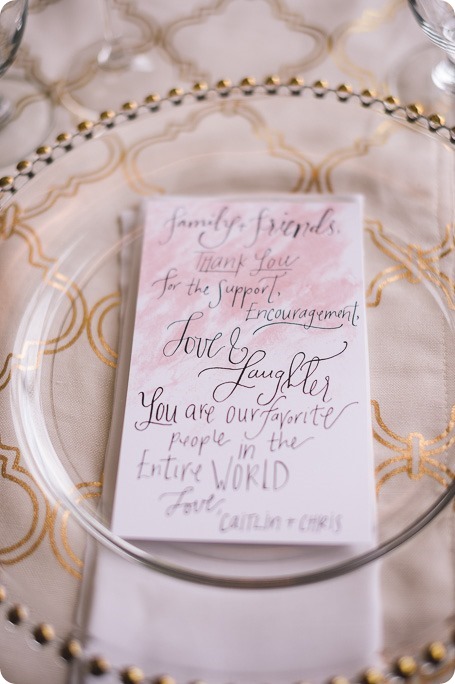 Family + Friends,
THANK YOU
for the Support,
Encouragement,
Love &
Laughter
You are our favorite
people in the
Entire WORLD
Love,
CAITLIN + CHRIS